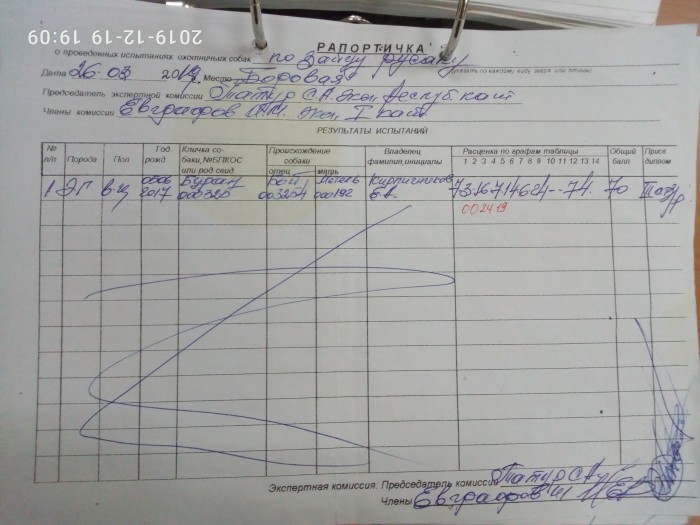 2019-12-19 19:09
РАПОРТИЧКА
о проведенных испытаниях охотничьих собак по зайцу русаку
(указать по каждому виду зверя или птицы)
Дата 26.03 2019 Место Боровая
Председатель экспертной комиссии Татур С.А. эксп. Республ. кат
Члены комиссии Евграфов И.М. эксп. I кат
РЕЗУЛЬТАТЫ ИСПЫТАНИЙ
№ п/п Порода Пол Год рожд Кличка собаки, №БПКОС или род свид. Происхождение собаки отец мать Владелец фамилия, инициалы Расценка по графам таблицы 1 2 3 4 5 6 7 8 9 10 11 12 13 14 Общий балл Присв диплом
1 ЭГ 0506 2017 Буран 000320 Бой 003254 000192 Кирпичников 70 III
002419
Экспертная комиссия: Председатель комиссии Татур С.А.
Члены Евграфов И